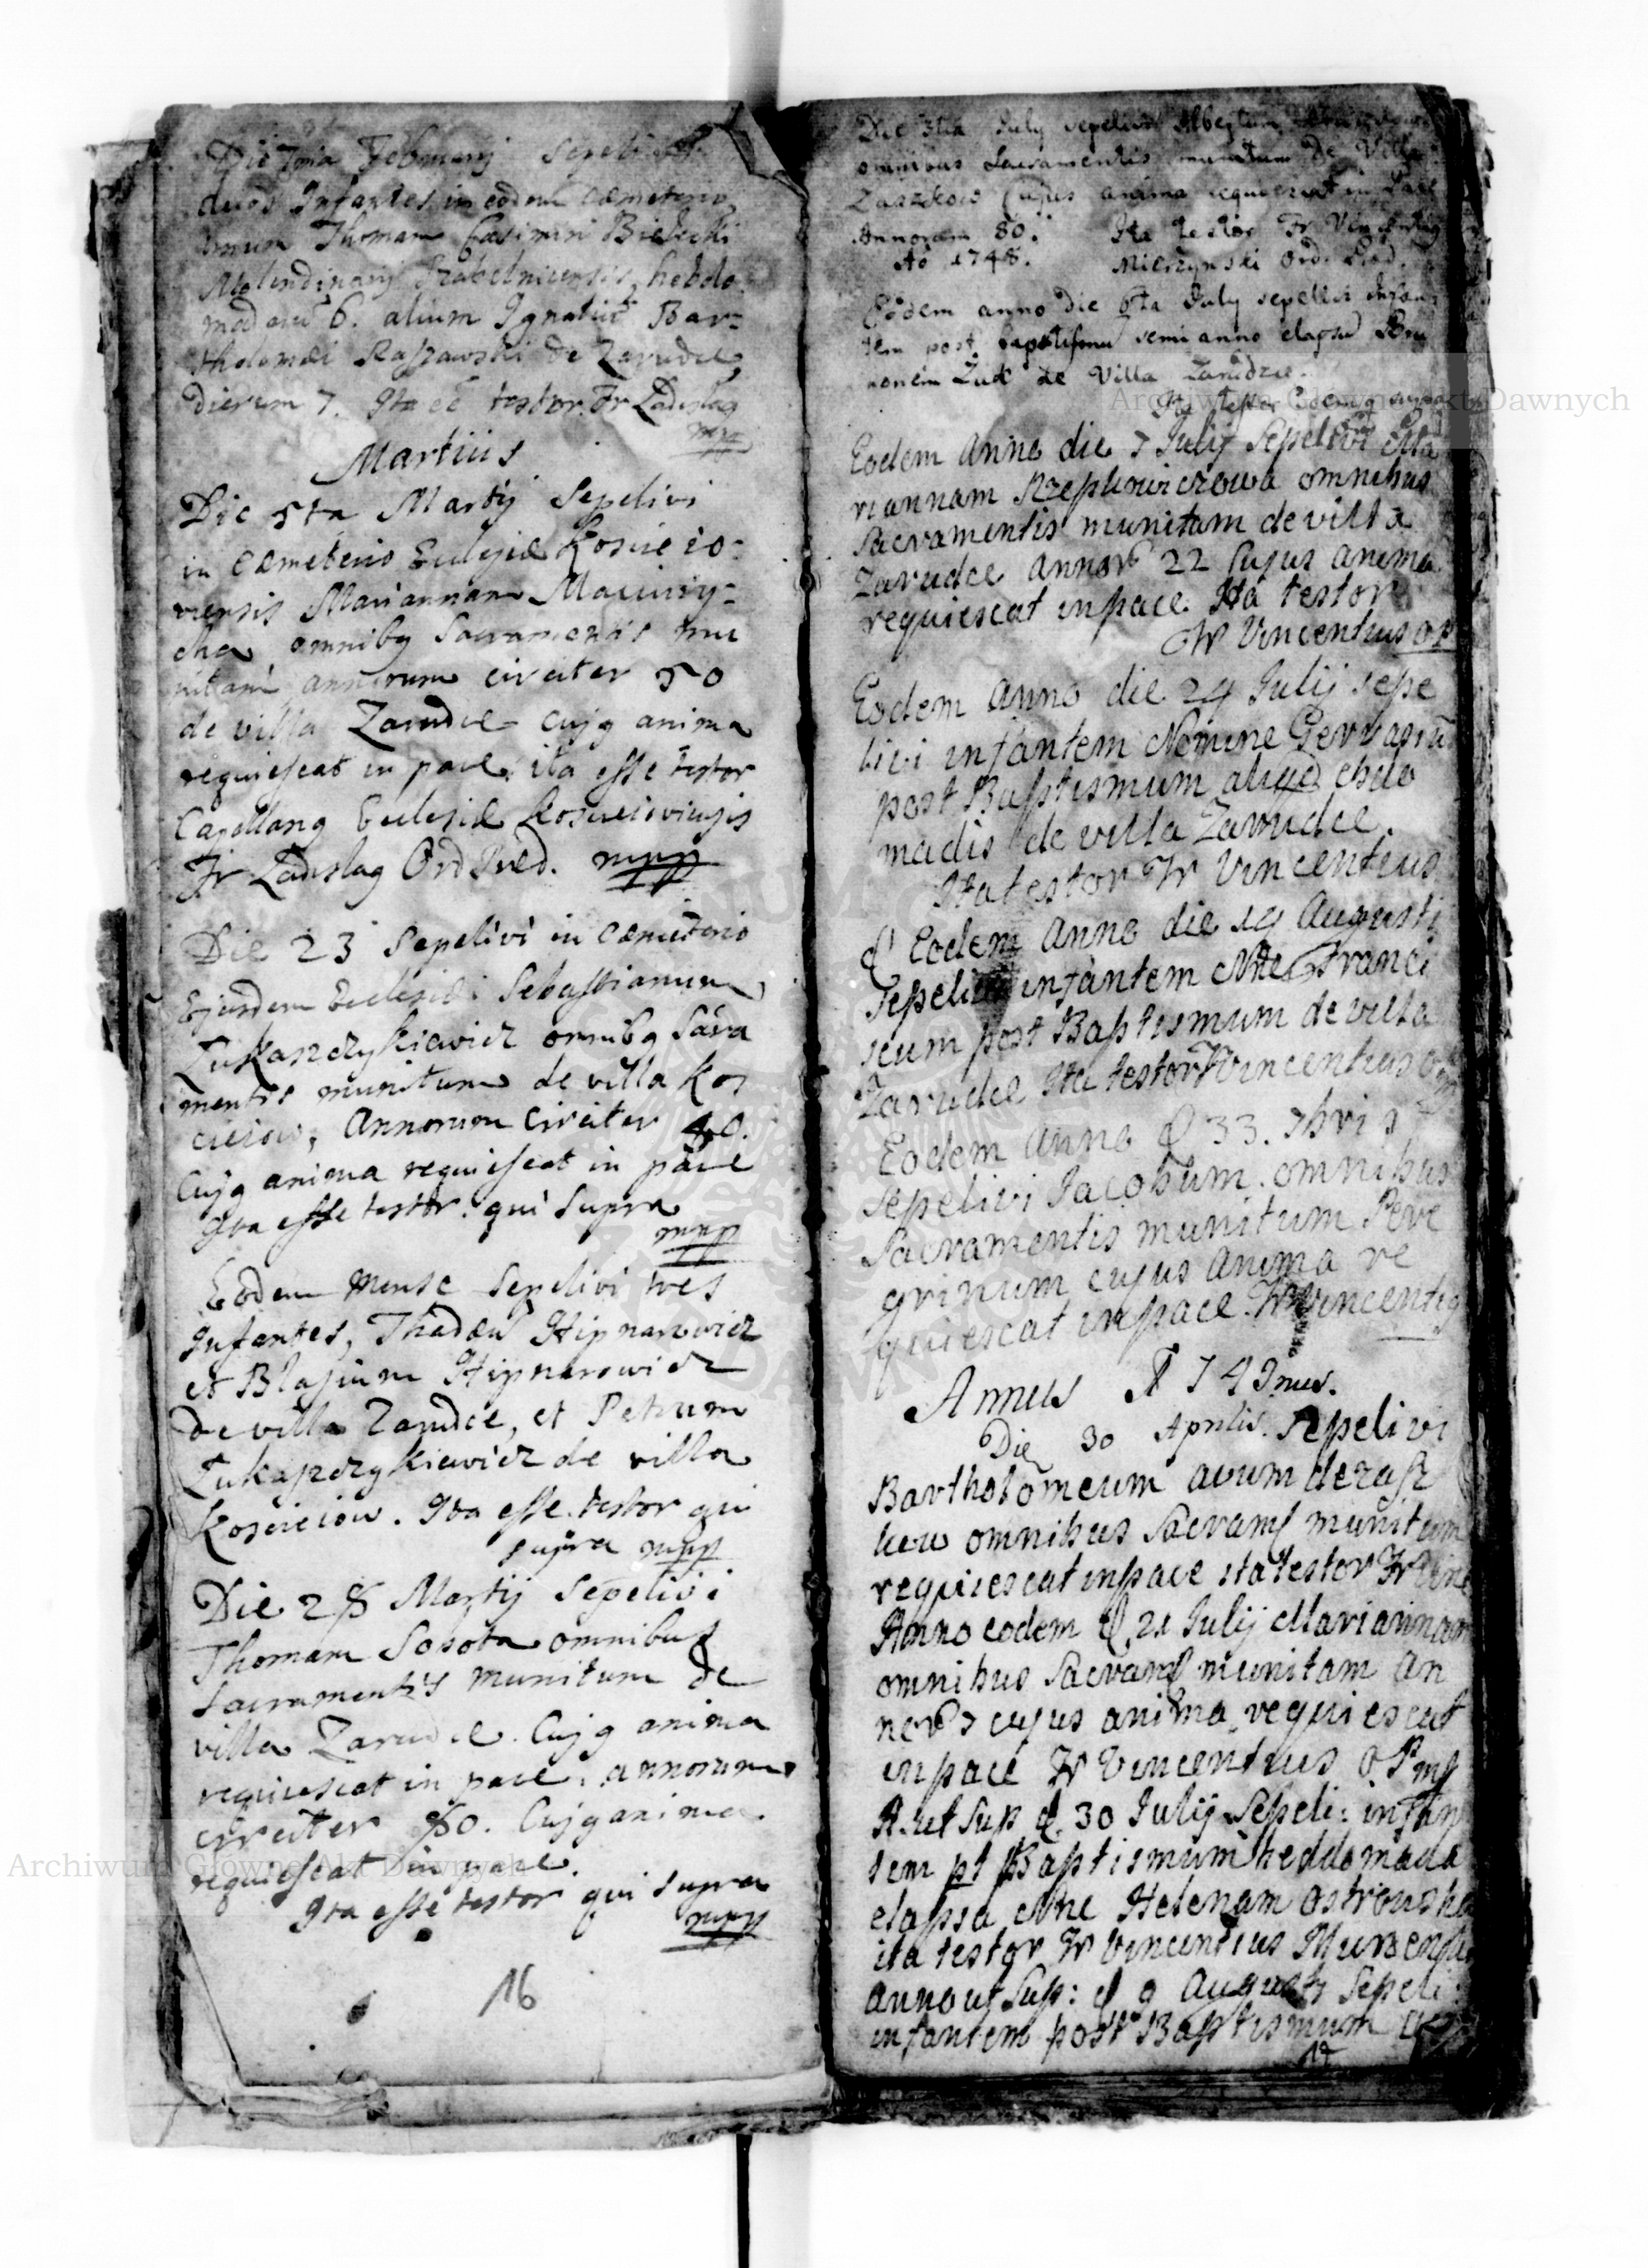 Die 7ma Februarij Sepelivi
duos Infantes in eodem cæmeterio
unum Thomam Casimiri Bielecki
Molendinarij hebdo
madarū 6. alium Ignatiū Bar-
tholomæi Raszawski de Zarudce,
dierum 7. Ita eē testor. Fr Ladislaq
mpp
Martius
Die 5ta Martij Sepelivi
in cæmeterio Eccliæ Kosciejo-
viensis Mariannam
cha omnibq Sacramentis mu
nitam annorum circiter 50
de villa Zarudce cujq anima
requiescat in pace. ita esse testor
Capellanq Ecclesiæ Kosciejoviensis
Fr Ladislaq Ord Præd. mpp
Die 23 Sepelivi in cæmeterio
Ejusdem Ecclesiæ Sebastianum
Łukaszczykiewicz omnibq Sacra
mentis munitum de villa Kos
ciejow, Annorum Circiter 40.
Cujq anima requiescat in pace
Ita esse testor. qui supra
mpp
Eodem mense Sepelivi tres
Infantes, Thadæū Hipnarowicz
et Blasium Hipnarowicz
de villa Zarudce, et Petrum
Łukaszczykiewicz de villa
Kościejow. Ita esse testor qui
supra mpp
Die 28 Martij Sepelivi
Thomam Sobota omnibus
sacramentis munitum de
villa Zarudce. Cujq anima
requiescat in pace. annorum
circiter 80. Cujq anima
requiescat in pace.
Ita esse testor qui supra
mpp
16
Die 3tia July sepelivi Albertum
omnibus Sacramentis munitum de Villa
Zaszkow Cujus anima requiescat in Pace
Annorum 80. Ita testor Fr Vincentiq
Aō 1748. Mierzynski Ord. Præd.
Eodem anno die 6ta July sepelivi Infan
tem post baptismū semi anno elapso
nonem Żuk de Villa Zarudze.
Ita testor idem q supra
Eodem Anno die 7 Julij Sepelivi Ma
riannam Rzepkowiczowa omnibus
Sacramentis munitam de villa
Zarudce annor 22 Cujus anima
requiescat in pace. Ita testor
Fr Vincentius OP
Eodem Anno die 24 Julij sepe
livi infantem Nomine Gervasiū
post Baptismum ebdo
madis de villa Zarudce.
Ita testor Fr Vincentius
Eodem Anno die 14 Augusti
Sepelivi infantem Nne Franci
scum post Baptismum de villa
Zarudce Ita testor Fr Vincentius OP
Eodem Anno d 33. 7bris
sepelivi Jacobum. omnibus
Sacramentis munitum Pere
grinum cujus anima re
quiescat in pace. Fr Vincentiq
Annus 1749nus.
Die 30 Aprilis. Sepelivi
Bartholomeum avum de Zasz
kow omnibus Sacram munitum
requiescat in pace ita testor Fr Vinc
Anno eodem d. 21 Julij Mariannam
omnibus Sacram munitam an
nor 7 cujus anima requiescat
in pace Fr Vincentius OP mp
A. ut sup d. 30 Julij Sepeli: infan
tem pt Baptismum heddomada
elapsa Nne Helenam Ostrowska
ita testor Fr Vincentius
Anno ut Sup: d 9 Augusti Sepeli:
infantem post Baptismum
17
Archiwum Główne Akt Dawnych
Archiwum Główne Akt Dawnych